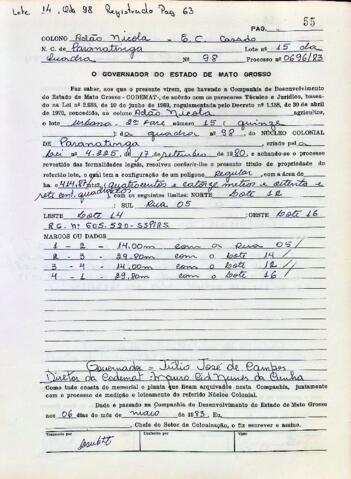 Lote 14, Qda 98 Registrado Pag 63
55
PAG.
COLONO Adão Nicola - E.C. Casado
N. C. de Paranatinga Lote nº 15 da
Quadra Nº 98 Processo nº 0696/83
O GOVERNADOR DO ESTADO DE MATO GROSSO
Faz saber, aos que o presente virem, que havendo a Companhia de Desenvolvimento
do Estado de Mato Grosso - CODEMAT, de acordo com os pareceres Técnico e Jurídico, baseado
na Lei nº de 10 de junho de regulamentada pelo Decreto nº de 30 de abril
de 1970, concedido, ao colono Adão Nicola agricultor,
o lote urbano 2ª Fase número 15 (quinze
) da quadra nº 98 do NÚCLEO COLONIAL
de Paranatinga criado pela
Lei nº 4.225, de 17 de setembro de 1980, e achando-se o processo
revestido das formalidades legais, resolveu conferir-lhe o presente título de propriedade do
referido lote, o qual tem a configuração de um polígono Regular com a área de
ha. 414,87m² (quatrocentos e catorze metros e oitenta e
sete cent. quadrados) com os seguintes limites: NORTE Lote 12
SUL Rua 05
LESTE Lote 14 OESTE Lote 16
R.G. nº 605.520-SSP/RS
MARCOS OU DADOS
1 - 2 - 14,00m com a Rua 05/
2 - 3 - 29,80m com o lote 14/
3 - 4 - 14,00m com o lote 12/
4 - 1 - 29,80m com o lote 16/
Governador = Júlio José de Campos
Diretor da Codemat - Mauro Cid Nunes da Cunha
Como tudo consta do memorial e planta que ficam arquivados nesta Companhia, juntamente
com o processo de medição e loteamento do referido Núcleo Colonial.
Dado e passado na Companhia de Desenvolvimento do Estado de Mato Grosso
aos 06 dias do mês de maio de 1983. Eu,
, Chefe do Setor de Colonização, o fiz escrever e assino.